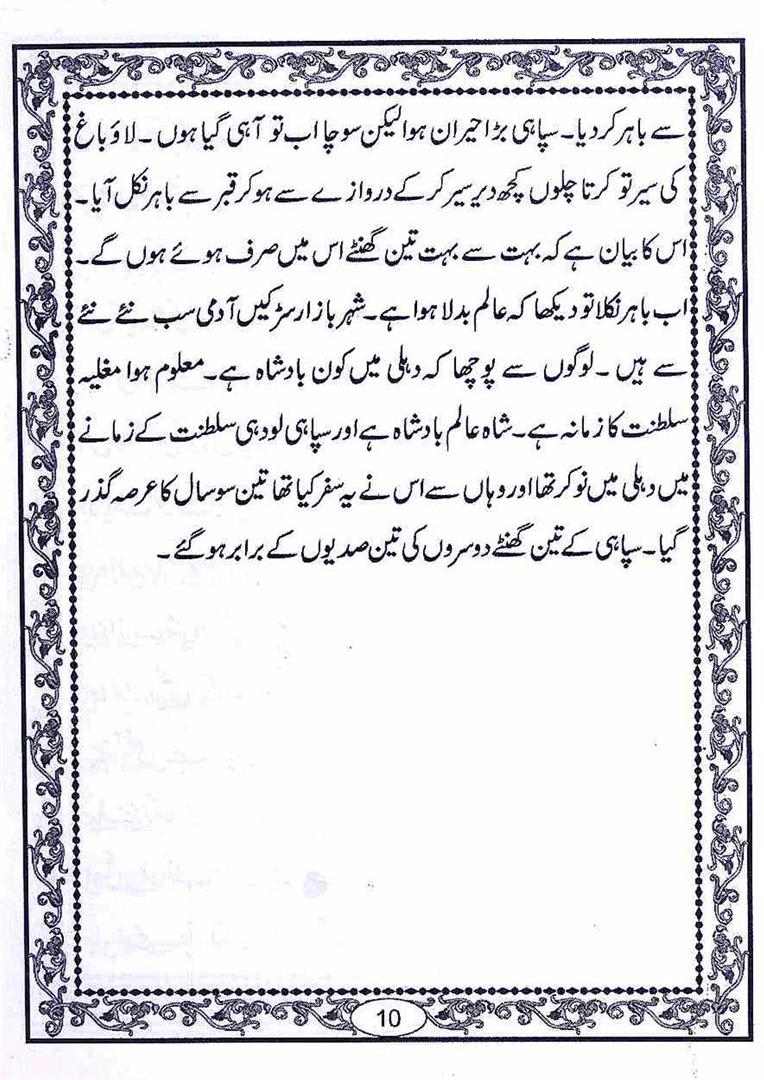 سے باہر کر دیا۔ سپاہی بڑا حیران ہوا لیکن سوچا اب تو آہی گیا ہوں۔ لاؤ باغ
کی سیر تو کرتا چلوں کچھ دیر سیر کر کے دروازے سے ہو کر قبر سے باہر نکل آیا۔
اس کا بیان ہے کہ بہت سے بہت تین گھنٹے اس میں صرف ہوئے ہوں گے۔
اب باہر نکلا تو دیکھا کہ عالم بدلا ہوا ہے۔ شہر بازار سڑکیں آدمی سب نئے نئے
سے ہیں۔ لوگوں سے پوچھا کہ دہلی میں کون بادشاہ ہے۔ معلوم ہوا مغلیہ
سلطنت کا زمانہ ہے۔ شاہ عالم بادشاہ ہے اور سپاہی لودہی سلطنت کے زمانے
میں دہلی میں نوکر تھا اور وہاں سے اس نے یہ سفر کیا تھا تین سو سال کا عرصہ گذر
گیا۔ سپاہی کے تین گھنٹے دوسروں کی تین صدیوں کے برابر ہو گئے۔
10